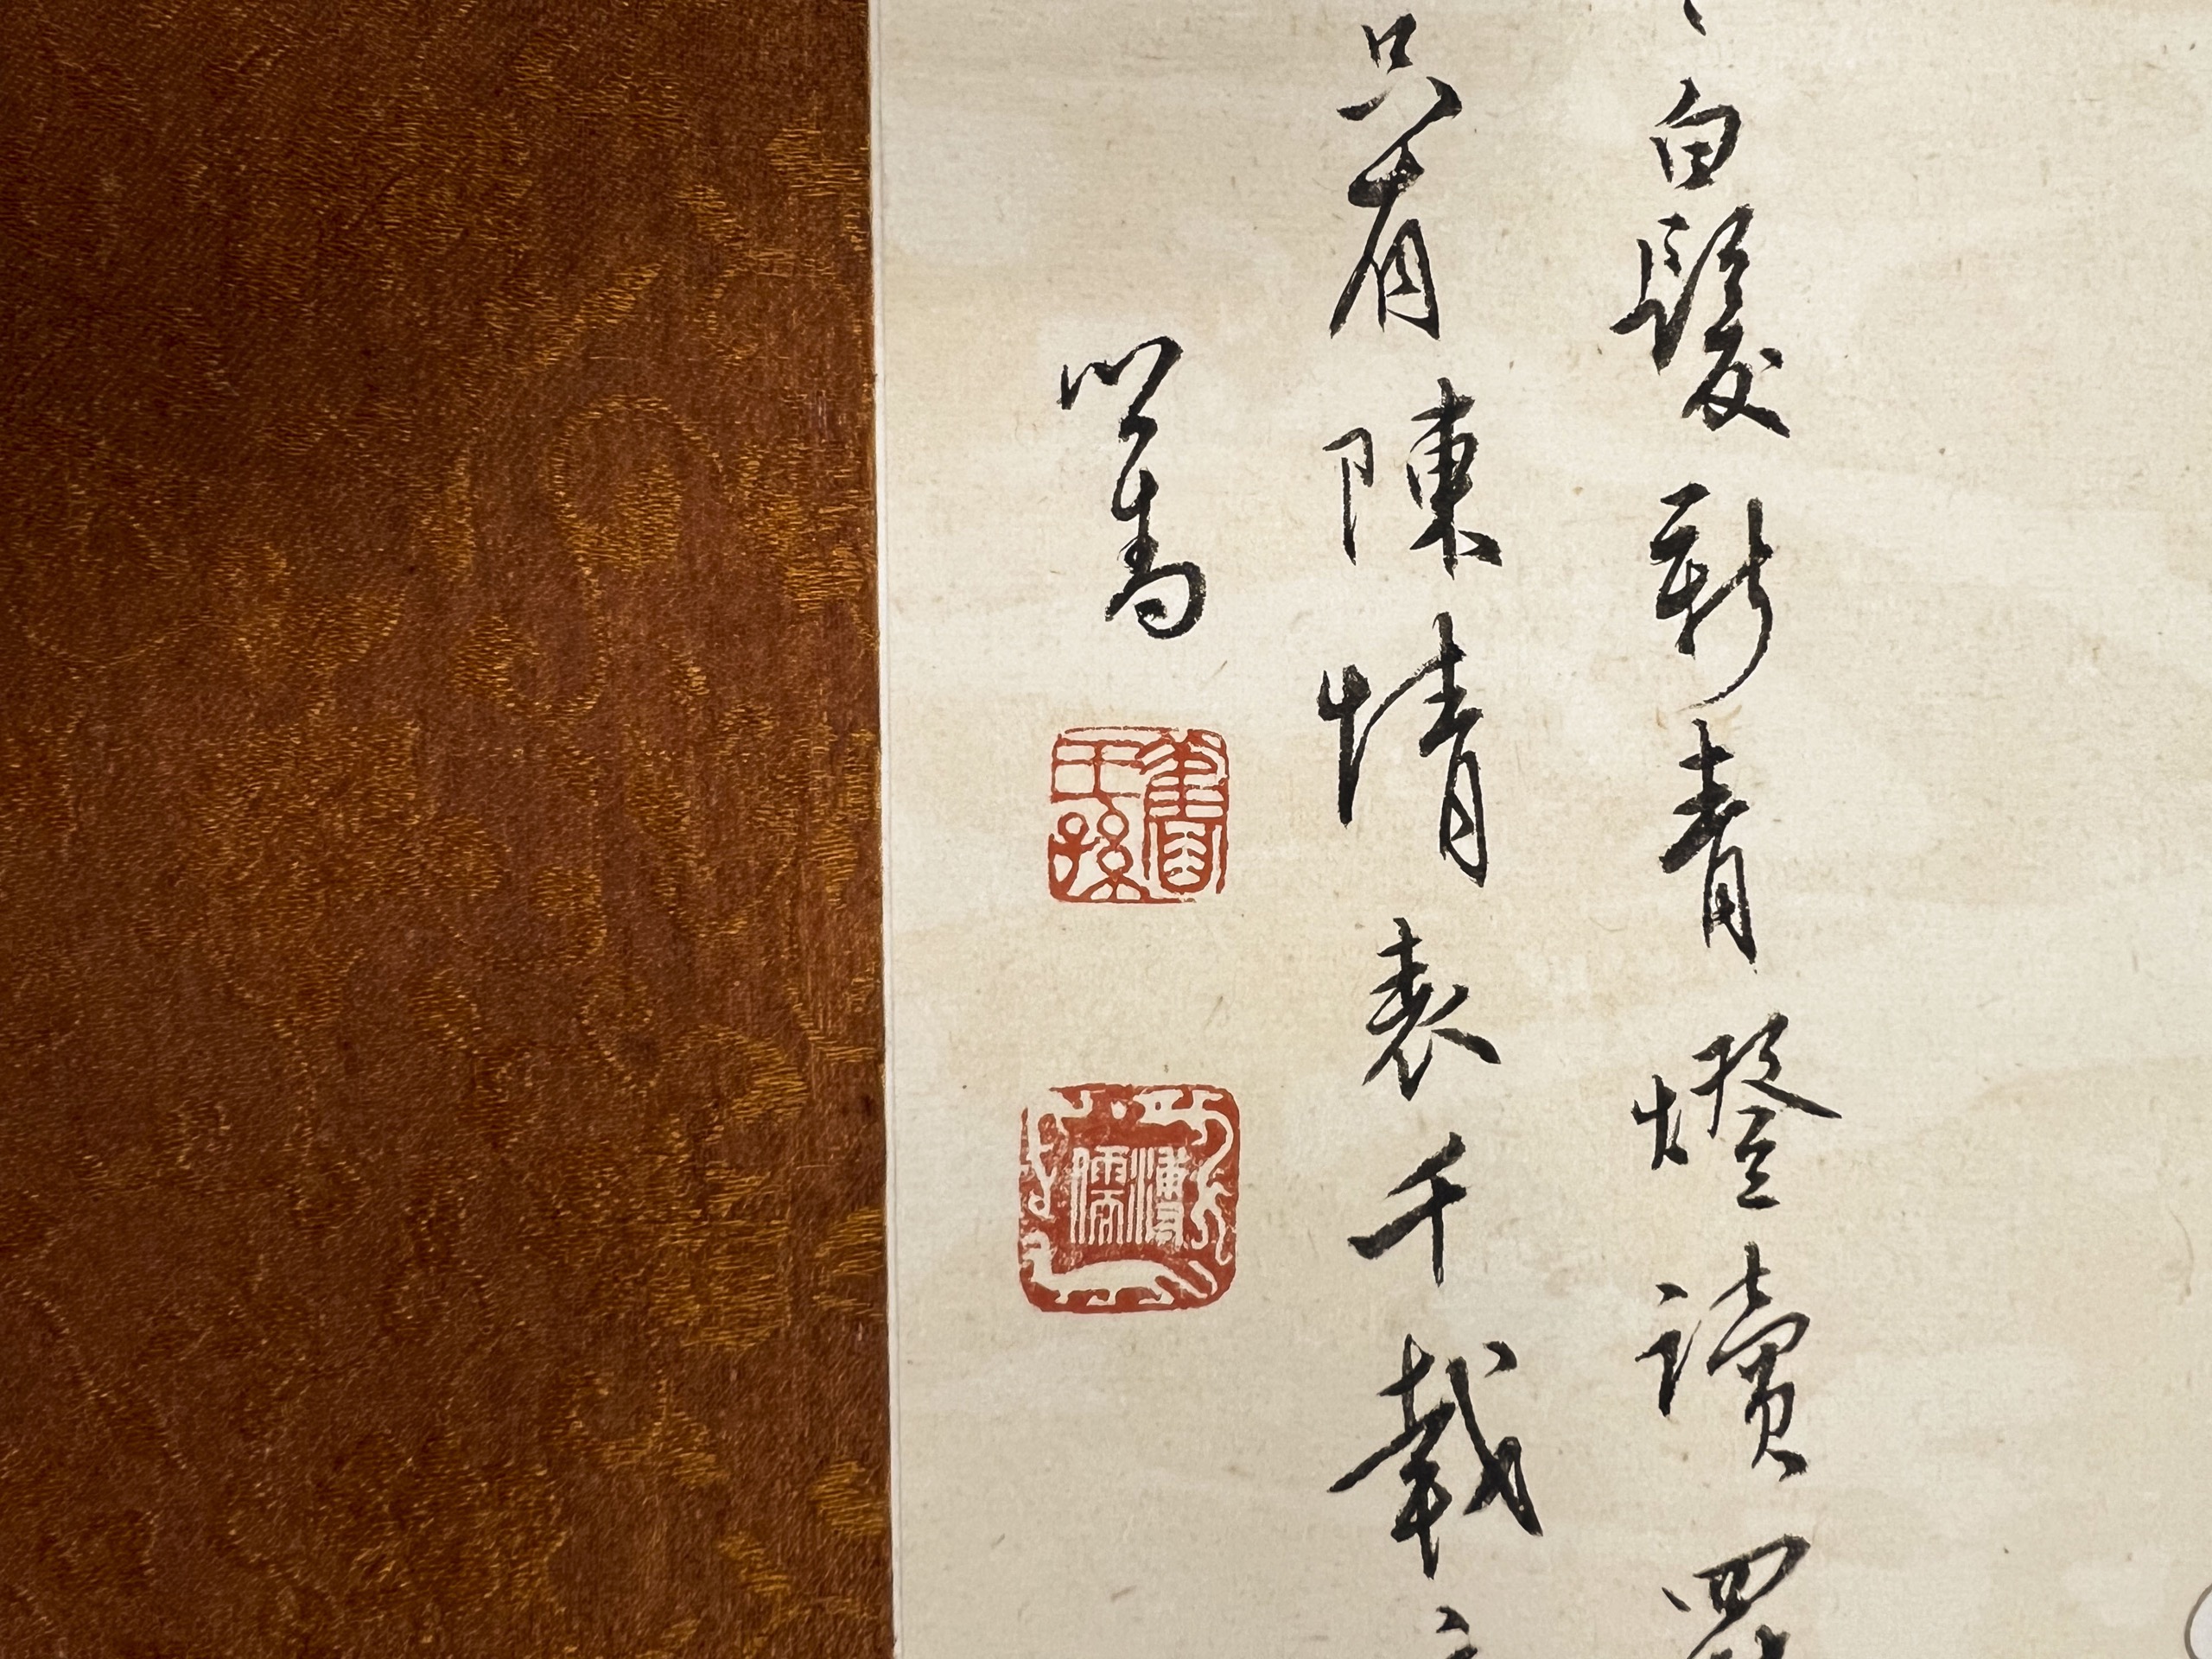 白髮新青燈讀四
只有陳情表千載
心畬
舊王孫
溥儒